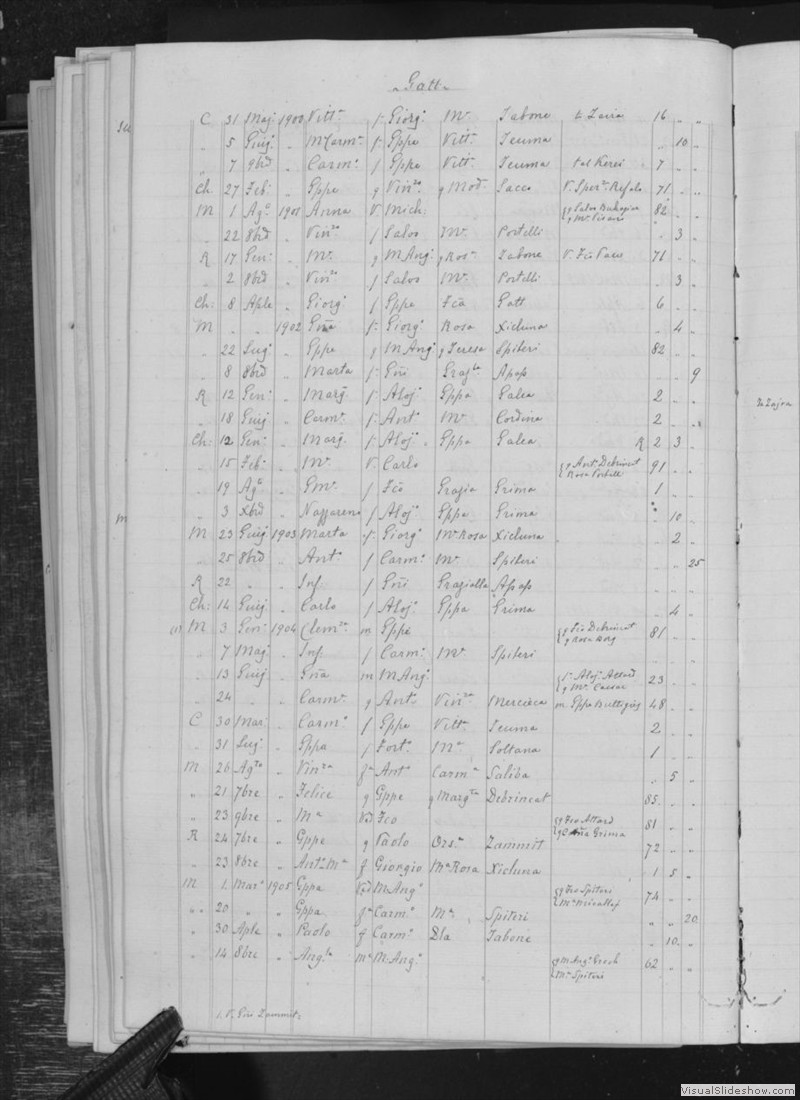 Gatt
C 31 Maj. 1900 Vitt.a f. Giorg. M.a Tabone ta Zaira 16 " "
" 5 Giug. " M.Carm.a f. Gppe Vitt.a Teuma " 10 "
" 7 9brd " Carm. f Gppe Vitt. Teuma tal Kerei 7 " "
Ch. 27 Feb. " Gppe q Vin.zo q Mod. Sacco V. Refalo 71 " "
M 1 Ag.o 1901 Anna V. Mich. 82 " "
" 22 8brd " Vin.zo f Salvo M.a Portelli " 3 "
R 17 Gen. " M.a q M Ang. q Ros. Tabone V. 71 " "
" 2 8brd " Vin.zo f Salvo M.a Portelli " 3 "
Ch: 8 Aple " Giorg. f Gppe Fca Gatt 6 " "
M " " 1902 Gña f. Giorg. Rosa Xicluna " 4 "
" 22 Lug. " Gppe q M Ang. q Teresa Spiteri 82 " "
" 8 8brd " Marta f. Gñi Graz.la " " 9
R 12 Gen. " Marg. f. Aloj. Gppa Galea 2 " "
" 18 Giug. " Carm. f. Ant. M.a Cordina 2 " "
Ch: 12 Gen. " Marg. f. Aloj. Gppa Galea R 2 3 "
" 15 Feb. " M.a V. Carlo { q Ant. Debrincat Rosa Portelli 91 " "
" 19 Ag.o " f Fco Grazia Grima 1 " "
" 3 Xbrd " Nazzareno f Aloj. Gppa Grima " 10 "
M 23 Giug. 1903 Marta f. Giorg. M.a Rosa Xicluna " 2 "
" 25 8brd " Ant. f Carm. M.a Spiteri " " 25
R 22 " " Inf. f Gñi Graziella
Ch: 14 Giug. " Carlo f Aloj. Gppa Grima " 4 "
(1) M 3 Gen. 1904 Clem.za m Gppe { q Fco Debrincat q Rosa Borg 81 " "
" 7 Mag. " Inf. f Carm. M.a Spiteri
" 13 Giug. " Gña m M Ang. { f. Aloj. Attard q M.a 23 " "
" 24 " " Carm. q Ant. Vin.za Mercieca m. Gppa Buttigieg 48 " "
C 30 Mar. " Carm. f Gppe Vitt.a Teuma 2 " "
" 31 Lug. " Gppa f Fort. M.a Soltana 1 " "
M 26 Ag.to " Vin.za f.a Ant. Carm.a Saliba " 5 "
" 21 7bre " Felice q Gppe q Marg.ta Debrincat 85 " "
" 23 9bre " M.a Vd Fco { q Fco Attard q Grima 81 " "
R 24 7bre " Gppe q Paolo Ors.a Zammit 72 " "
" 23 8bre " Ant.a M.a f Giorgio M.a Rosa Xicluna 1 5 "
M 1 Mar. 1905 Gppa Vd M.Ang. { q Fco Spiteri M.a Micallef 74 " "
" 20 " " Gppa f.a Carm. M.a Spiteri " " 20
" 30 Aple " Paolo f Carm. Dla Tabone " 10 "
" 14 8bre " Ang.la m.a M.Ang. { q M Ang. Grech M.a Spiteri 62 " "
1. V. Gñi Zammit
Ta Zajra
VisualSlideshow.com